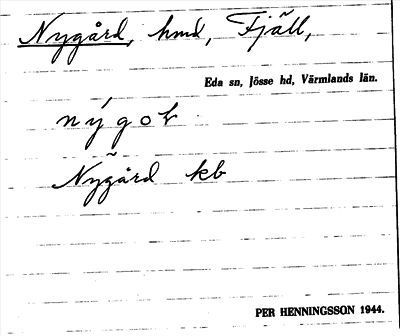 Nygård, hmd, Fjäll,
Eda sn, Jösse hd, Värmlands län.
nýgoḷ
Nygård kb
PER HENNINGSSON 1944.